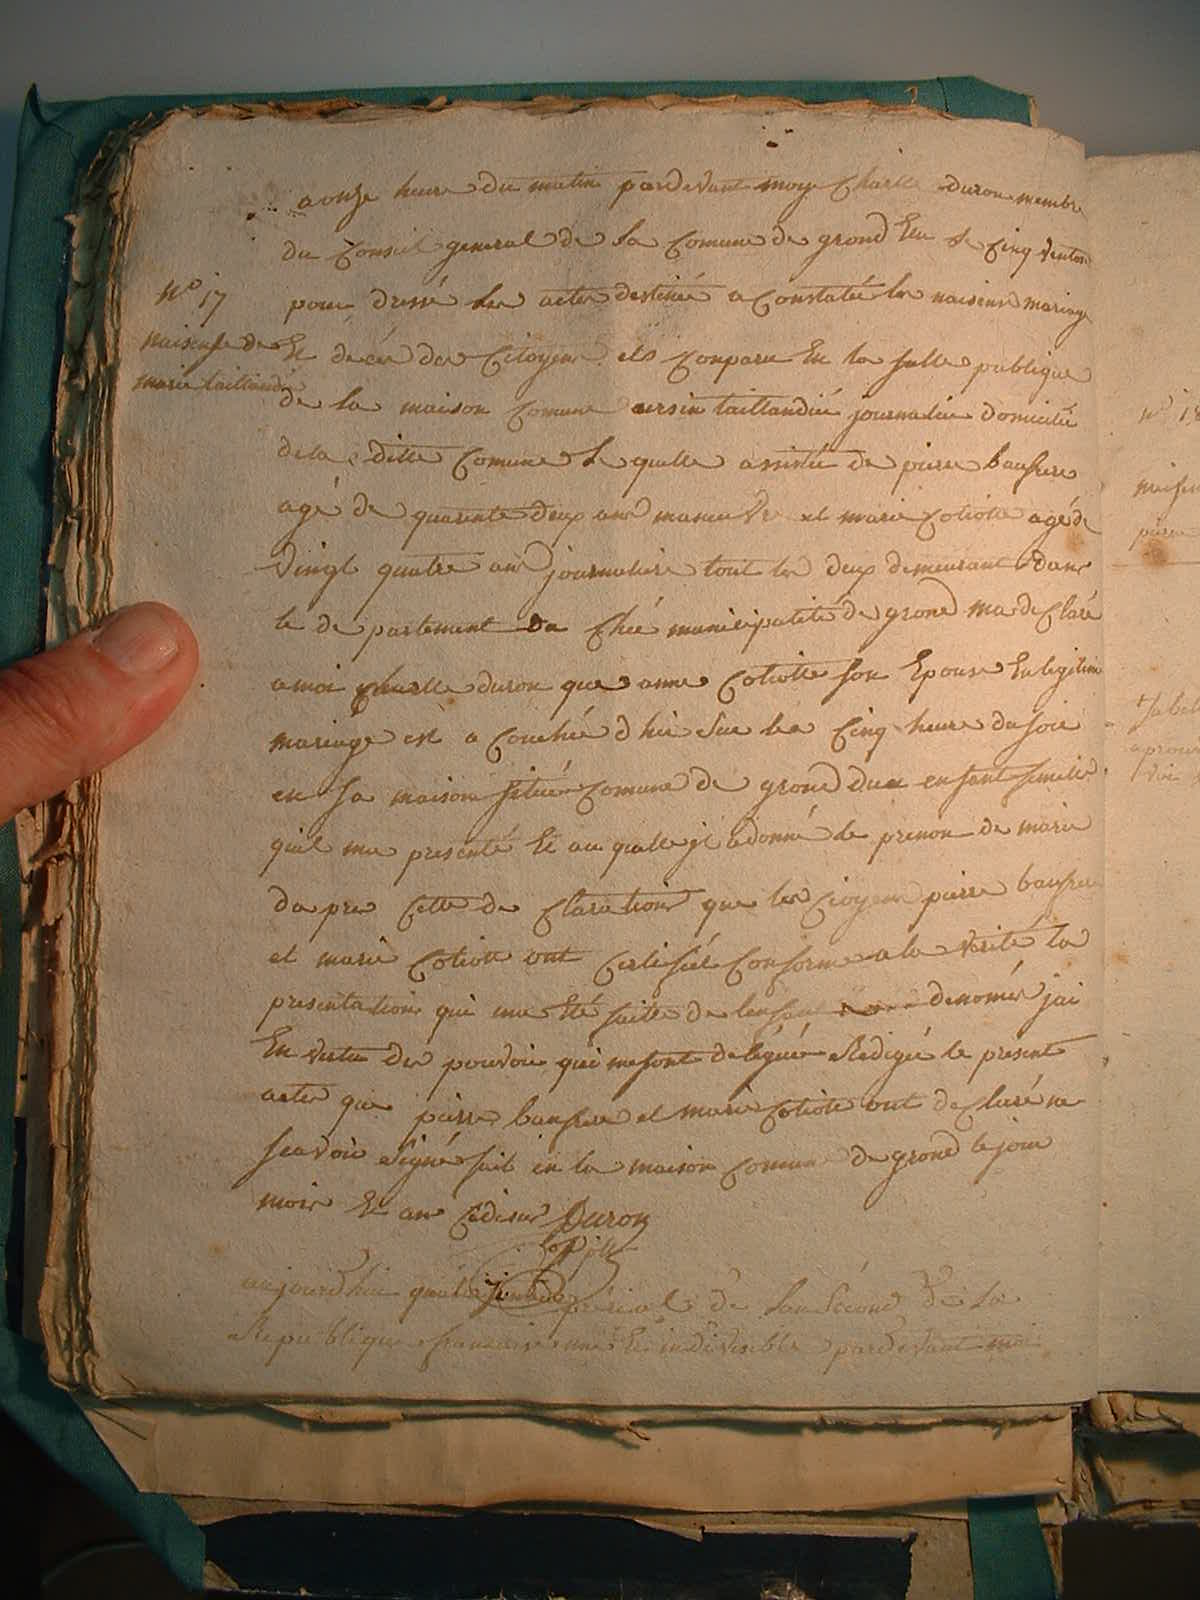 a onze heure du matin pardevant moy Charle duron membre
du Conseil general de la Comune de grond Elu le Cinq ventose
N° 17
pour dressé les actes destiné a Constaté les naisence mariage
naisense de
marie taillandié
Et décé des Citoyens est Conparu En la salle publique
de la maison Comune ursin taillandié journalié domicilié
de la ditte Comune le quelle assisté de pierre baufrere
agé de quarente deux ans maneuvre et marie Cotiotte agé de
vingt quatre ans journaliere tout les deux demeurant dans
le département du Cheé municipalité de grond ma déClaré
a moi Charle duron que anne Cotiotte son Epouse En legitime
mariage est a Couchée d'hié sur les Cinq heure du soir
en sa maison situé Comune de grond dun enfant femelle
quil ma presenté Et au quelle jl a donné le prenon de marie
da pres Cette de Claration que les Citoyens pierre baufrere
et marie Cotiotte ont Certifié Conforme a la vérité la
presentation qui ma Eté faitte de lenfant denomée jai
En vertu des pouvoir qui me sont delégué Redigée le present
acte que pierre baufrere et marie Cotiotte ont déClaré ne
scavoir signé fait en la maison Comune de grond le jour
mois Et an Cidesus Duron
off. p.
aujourdhui de lan second de la
République francaise une Et indivisible pardevant moi
N° 18